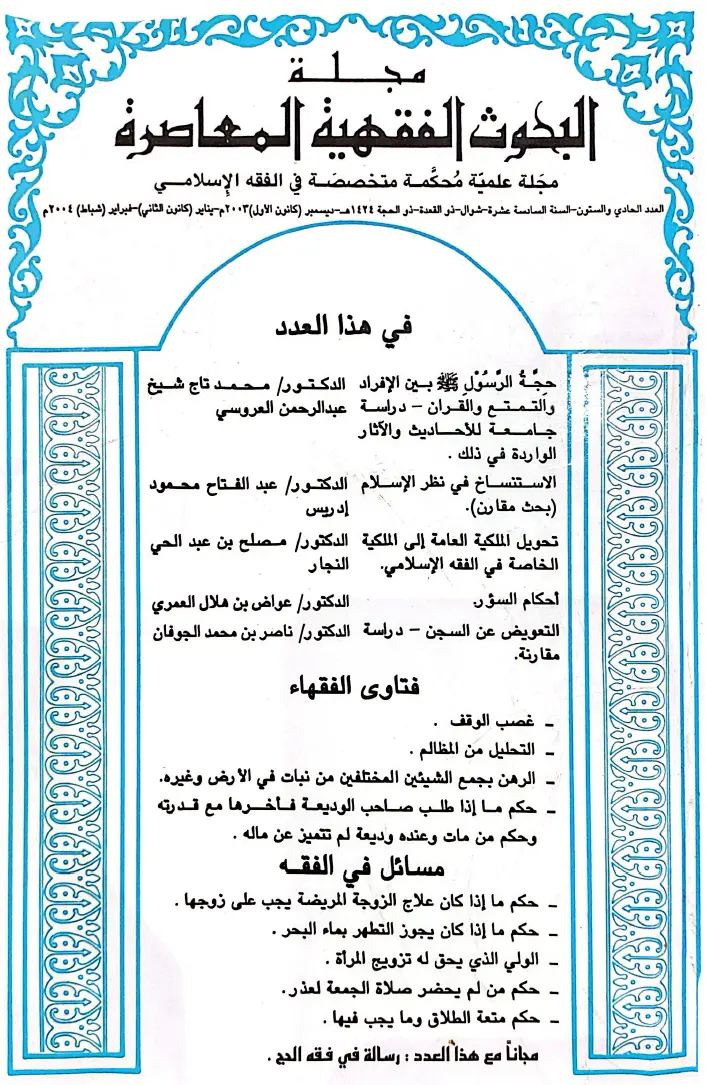 مجلة
البحوث الفقهية المعاصرة
مجلة علمية مُحكَّمة متخصصة في الفقه الإسلامي
العدد الحادي والستون-السنة السادسة عشرة-شوال-ذو القعدة-ذو الحجة ١٤٢٤هـ-ديسمبر (كانون الأول)٢٠٠٣م-يناير (كانون الثاني)-فبراير (شباط) ٢٠٠٤م
في هذا العدد
حجَّةُ الرَّسُوْلِ ﷺ بين الإفراد الدكتور/ محمد تاج شيخ
والتمتع والقران - دراسة عبدالرحمن العروسي
جامعة للأحاديث والآثار
الواردة في ذلك .
الاستنساخ في نظر الإسلام الدكتور/ عبد الفتاح محمود
(بحث مقارن). إدريس
تحويل الملكية العامة إلى الملكية الدكتور/ مصلح بن عبد الحي
الخاصة في الفقه الإسلامي. النجار
أحكام السؤر. الدكتور/ عواض بن هلال العمري
التعويض عن السجن - دراسة الدكتور/ ناصر بن محمد الجوفان
مقارنة.
فتاوى الفقهاء
- غصب الوقف .
- التحليل من المظالم .
- الرهن بجمع الشيئين المختلفين من نبات في الأرض وغيره.
- حكم ما إذا طلب صاحب الوديعة فأخرها مع قدرته
وحكم من مات وعنده وديعة لم تتميز عن ماله .
مسائل في الفقه
- حكم ما إذا كان علاج الزوجة المريضة يجب على زوجها .
- حكم ما إذا كان يجوز التطهر بماء البحر .
- الولي الذي يحق له تزويج المرأة .
- حكم من لم يحضر صلاة الجمعة لعذر.
- حكم متعة الطلاق وما يجب فيها .
مجاناً مع هذا العدد : رسالة في فقه الحج .